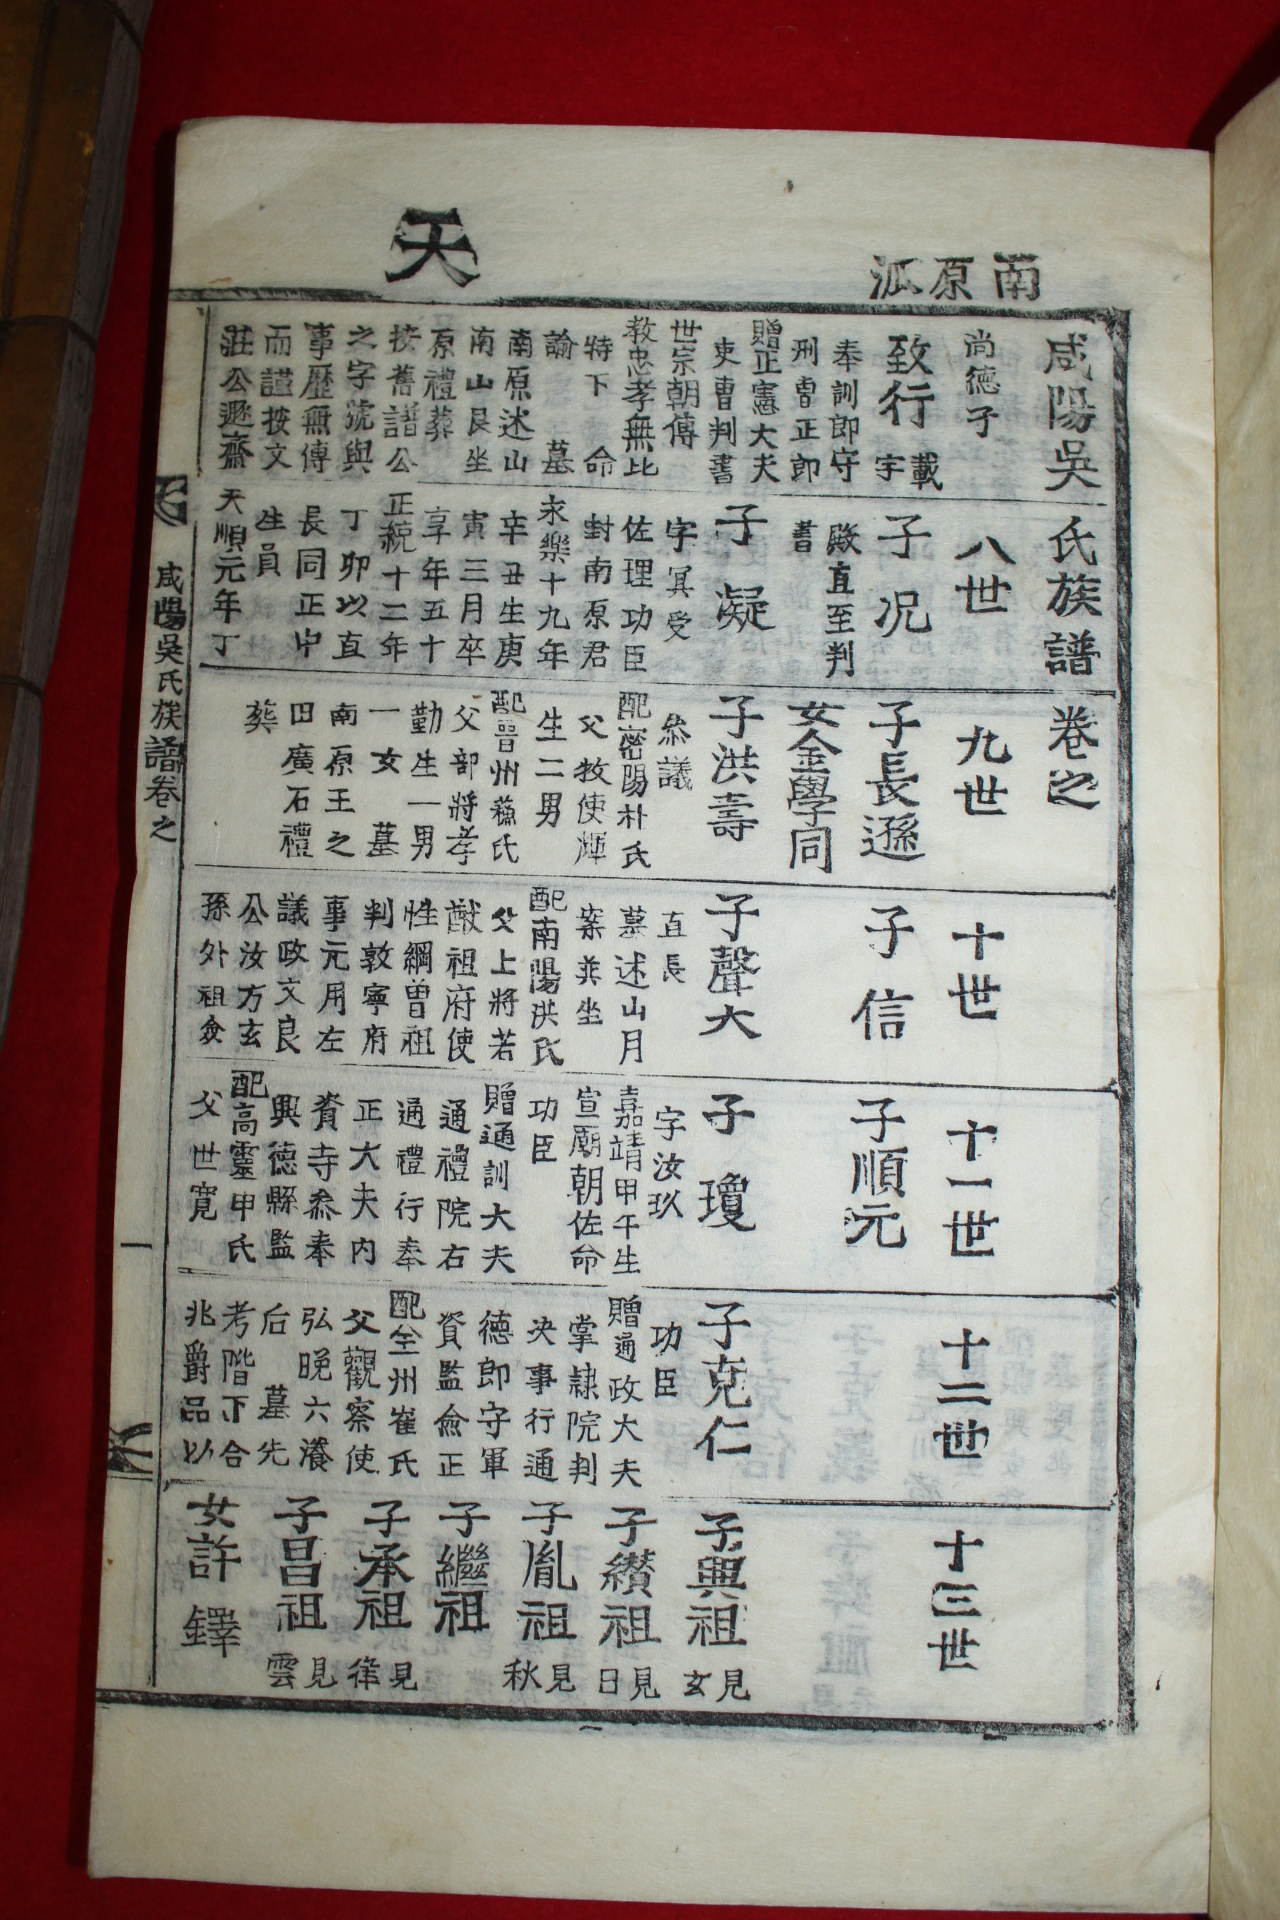 南原派
天
咸陽吳氏族譜卷之
尙德子
致行
載
字
奉訓郎守
刑曹正郎
贈正憲大夫
吏曹判書
世宗朝傳
敎忠孝無比
特下　命
諭　墓
南原述山
南山艮坐
原禮葬
按舊譜公
之字號與
事歷無傳
而謹按文
莊公遯齋
八世
子況
殿直至判
書
子凝
字冥受
佐理功臣
封南原君
永樂十九年
辛丑生庚
寅三月卒
享年五十
正統十二年
丁卯以直
長同正中
生員
天順元年丁
九世
子長遜
女金學同
子洪壽
叅議
配密陽朴氏
父牧使煇
生二男
配晋州蘇氏
父部將孝
勤生一男
一女　墓
南原王之
田廣石禮
葬
十世
子信
子聲大
直長
墓述山月
案巽坐
配南陽洪氏
父上將若
猷祖府使
性綱曾祖
判敦寧府
事元用左
議政文良
公汝方玄
孫外祖僉
十一世
子順元
子瓊
字汝玖
嘉靖甲午生
宣廟朝佐命
功臣
贈通訓大夫
通禮院右
通禮行奉
正大夫內
資寺叅奉
興德縣監
配高靈申氏
父世寬
十二世
子克仁
功臣
贈通政大夫
掌隷院判
决事行通
德郎守軍
資監僉正
配全州崔氏
父觀察使
弘晩六瀁
后　墓先
考階下合
兆爵品以
十三世
子興祖
見
玄
子纉祖
見
日
子胤祖
見
秋
子繼祖
子承祖
見
律
子昌祖
見
雲
女許鐸
咸陽吳氏族譜卷之
一